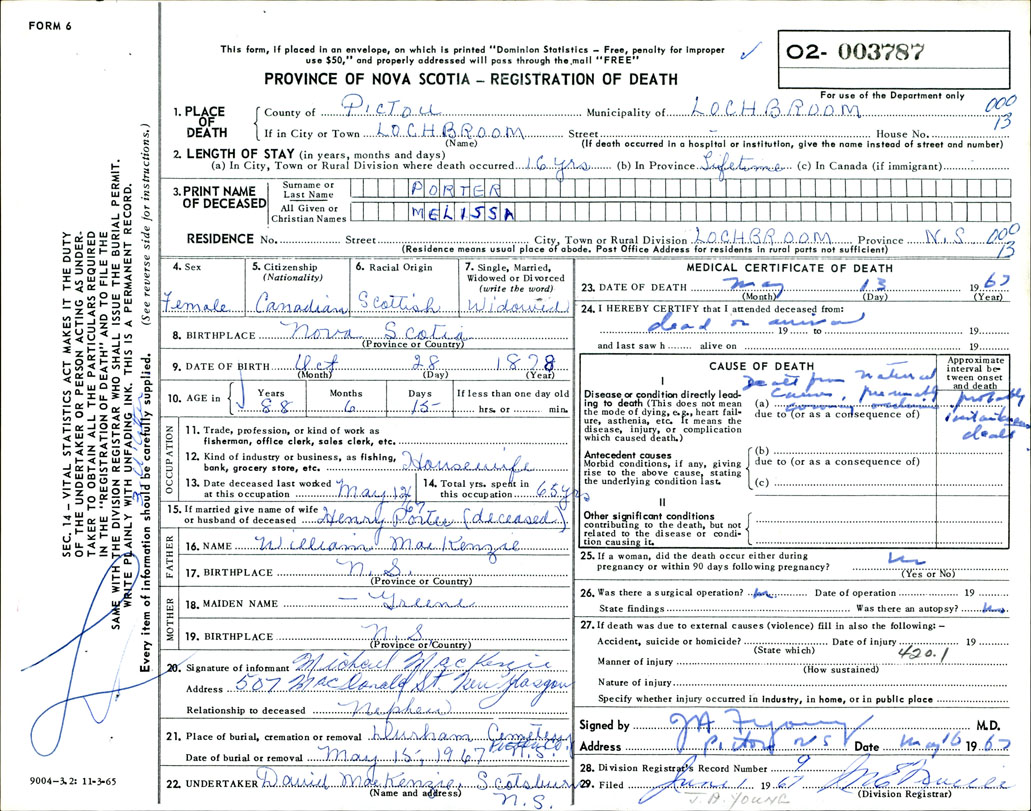 FORM 6
This form, if placed in an envelope, on which is printed "Dominion Statistics – Free, penalty for improper
use $50," and properly addressed will pass through the mail "FREE"
O2- 003787
PROVINCE OF NOVA SCOTIA – REGISTRATION OF DEATH
For use of the Department only
1. PLACE OF DEATH
County of PICTOU Municipality of LOCHBROOM 000
If in City or Town LOCHBROOM Street – House No. 13
(Name) (If death occurred in a hospital or institution, give the name instead of street and number)
2. LENGTH OF STAY (in years, months and days)
(a) In City, Town or Rural Division where death occurred 16 yrs (b) In Province Lifetime (c) In Canada (if immigrant)
3. PRINT NAME OF DECEASED
Surname or Last Name PORTER
All Given or Christian Names MELISSA
RESIDENCE No. Street City, Town or Rural Division LOCHBROOM Province N.S. 000
(Residence means usual place of abode. Post Office Address for residents in rural parts not sufficient) 13
4. Sex Female
5. Citizenship (Nationality) Canadian
6. Racial Origin Scottish
7. Single, Married, Widowed or Divorced (write the word) Widowed
8. BIRTHPLACE Nova Scotia
(Province or Country)
9. DATE OF BIRTH Oct 28 1878
(Month) (Day) (Year)
10. AGE in Years Months Days If less than one day old
88 6 15 hrs. or min.
OCCUPATION
11. Trade, profession, or kind of work as
fisherman, office clerk, sales clerk, etc.
12. Kind of industry or business, as fishing,
bank, grocery store, etc. Housewife
13. Date deceased last worked
at this occupation May 12/67
14. Total yrs. spent in
this occupation 65 yrs
15. If married give name of wife
or husband of deceased Henry Porter (deceased)
FATHER
16. NAME William MacKenzie
17. BIRTHPLACE N.S.
(Province or Country)
MOTHER
18. MAIDEN NAME – Greene
19. BIRTHPLACE N.S.
(Province or Country)
20. Signature of informant Michael MacKenzie
Address 507 MacDonald St. New Glasgow
Relationship to deceased Nephew
21. Place of burial, cremation or removal Durham Cemetery
Pictou Co.
Date of burial or removal May 15, 1967
22. UNDERTAKER David MacKenzie, Scotsburn
(Name and address) N.S.
MEDICAL CERTIFICATE OF DEATH
23. DATE OF DEATH May 13 1967
(Month) (Day) (Year)
24. I HEREBY CERTIFY that I attended deceased from:
dead on arrival 19 to 19
and last saw h alive on 19
CAUSE OF DEATH
Approximate interval between onset and death
I
Disease or condition directly leading
to death (This does not mean
the mode of dying, e.g., heart failure,
asthenia, etc. It means the
disease, injury, or complication
which caused death.)
Death from natural
causes, presumably
(a)
due to (or as a consequence of)
probably
instantaneous
death
Antecedent causes
Morbid conditions, if any, giving
rise to the above cause, stating
the underlying condition last.
(b)
due to (or as a consequence of)
(c)
II
Other significant conditions
contributing to the death, but not
related to the disease or condition
causing it.
25. If a woman, did the death occur either during
pregnancy or within 90 days following pregnancy? No
(Yes or No)
26. Was there a surgical operation? No Date of operation 19
State findings Was there an autopsy? No
27. If death was due to external causes (violence) fill in also the following: –
Accident, suicide or homicide? Date of injury 19
(State which) 420.1
Manner of injury
(How sustained)
Nature of injury
Specify whether injury occurred in industry, in home, or in public place
Signed by J A F Young M.D.
Address Pictou NS Date May 16 1967
28. Division Registrar's Record Number 9
29. Filed June 1 1967
(Division Registrar)
J. A. YOUNG
SEC. 14 – VITAL STATISTICS ACT MAKES IT THE DUTY
OF THE UNDERTAKER OR PERSON ACTING AS UNDERTAKER
TO OBTAIN ALL THE PARTICULARS REQUIRED
IN THE "REGISTRATION OF DEATH" AND TO FILE THE
SAME WITH THE DIVISION REGISTRAR WHO SHALL ISSUE THE BURIAL PERMIT.
WRITE PLAINLY WITH UNFADING INK. THIS IS A PERMANENT RECORD.
Every item of information should be carefully supplied. (See reverse side for instructions.)
9004-3.2: 11-3-65